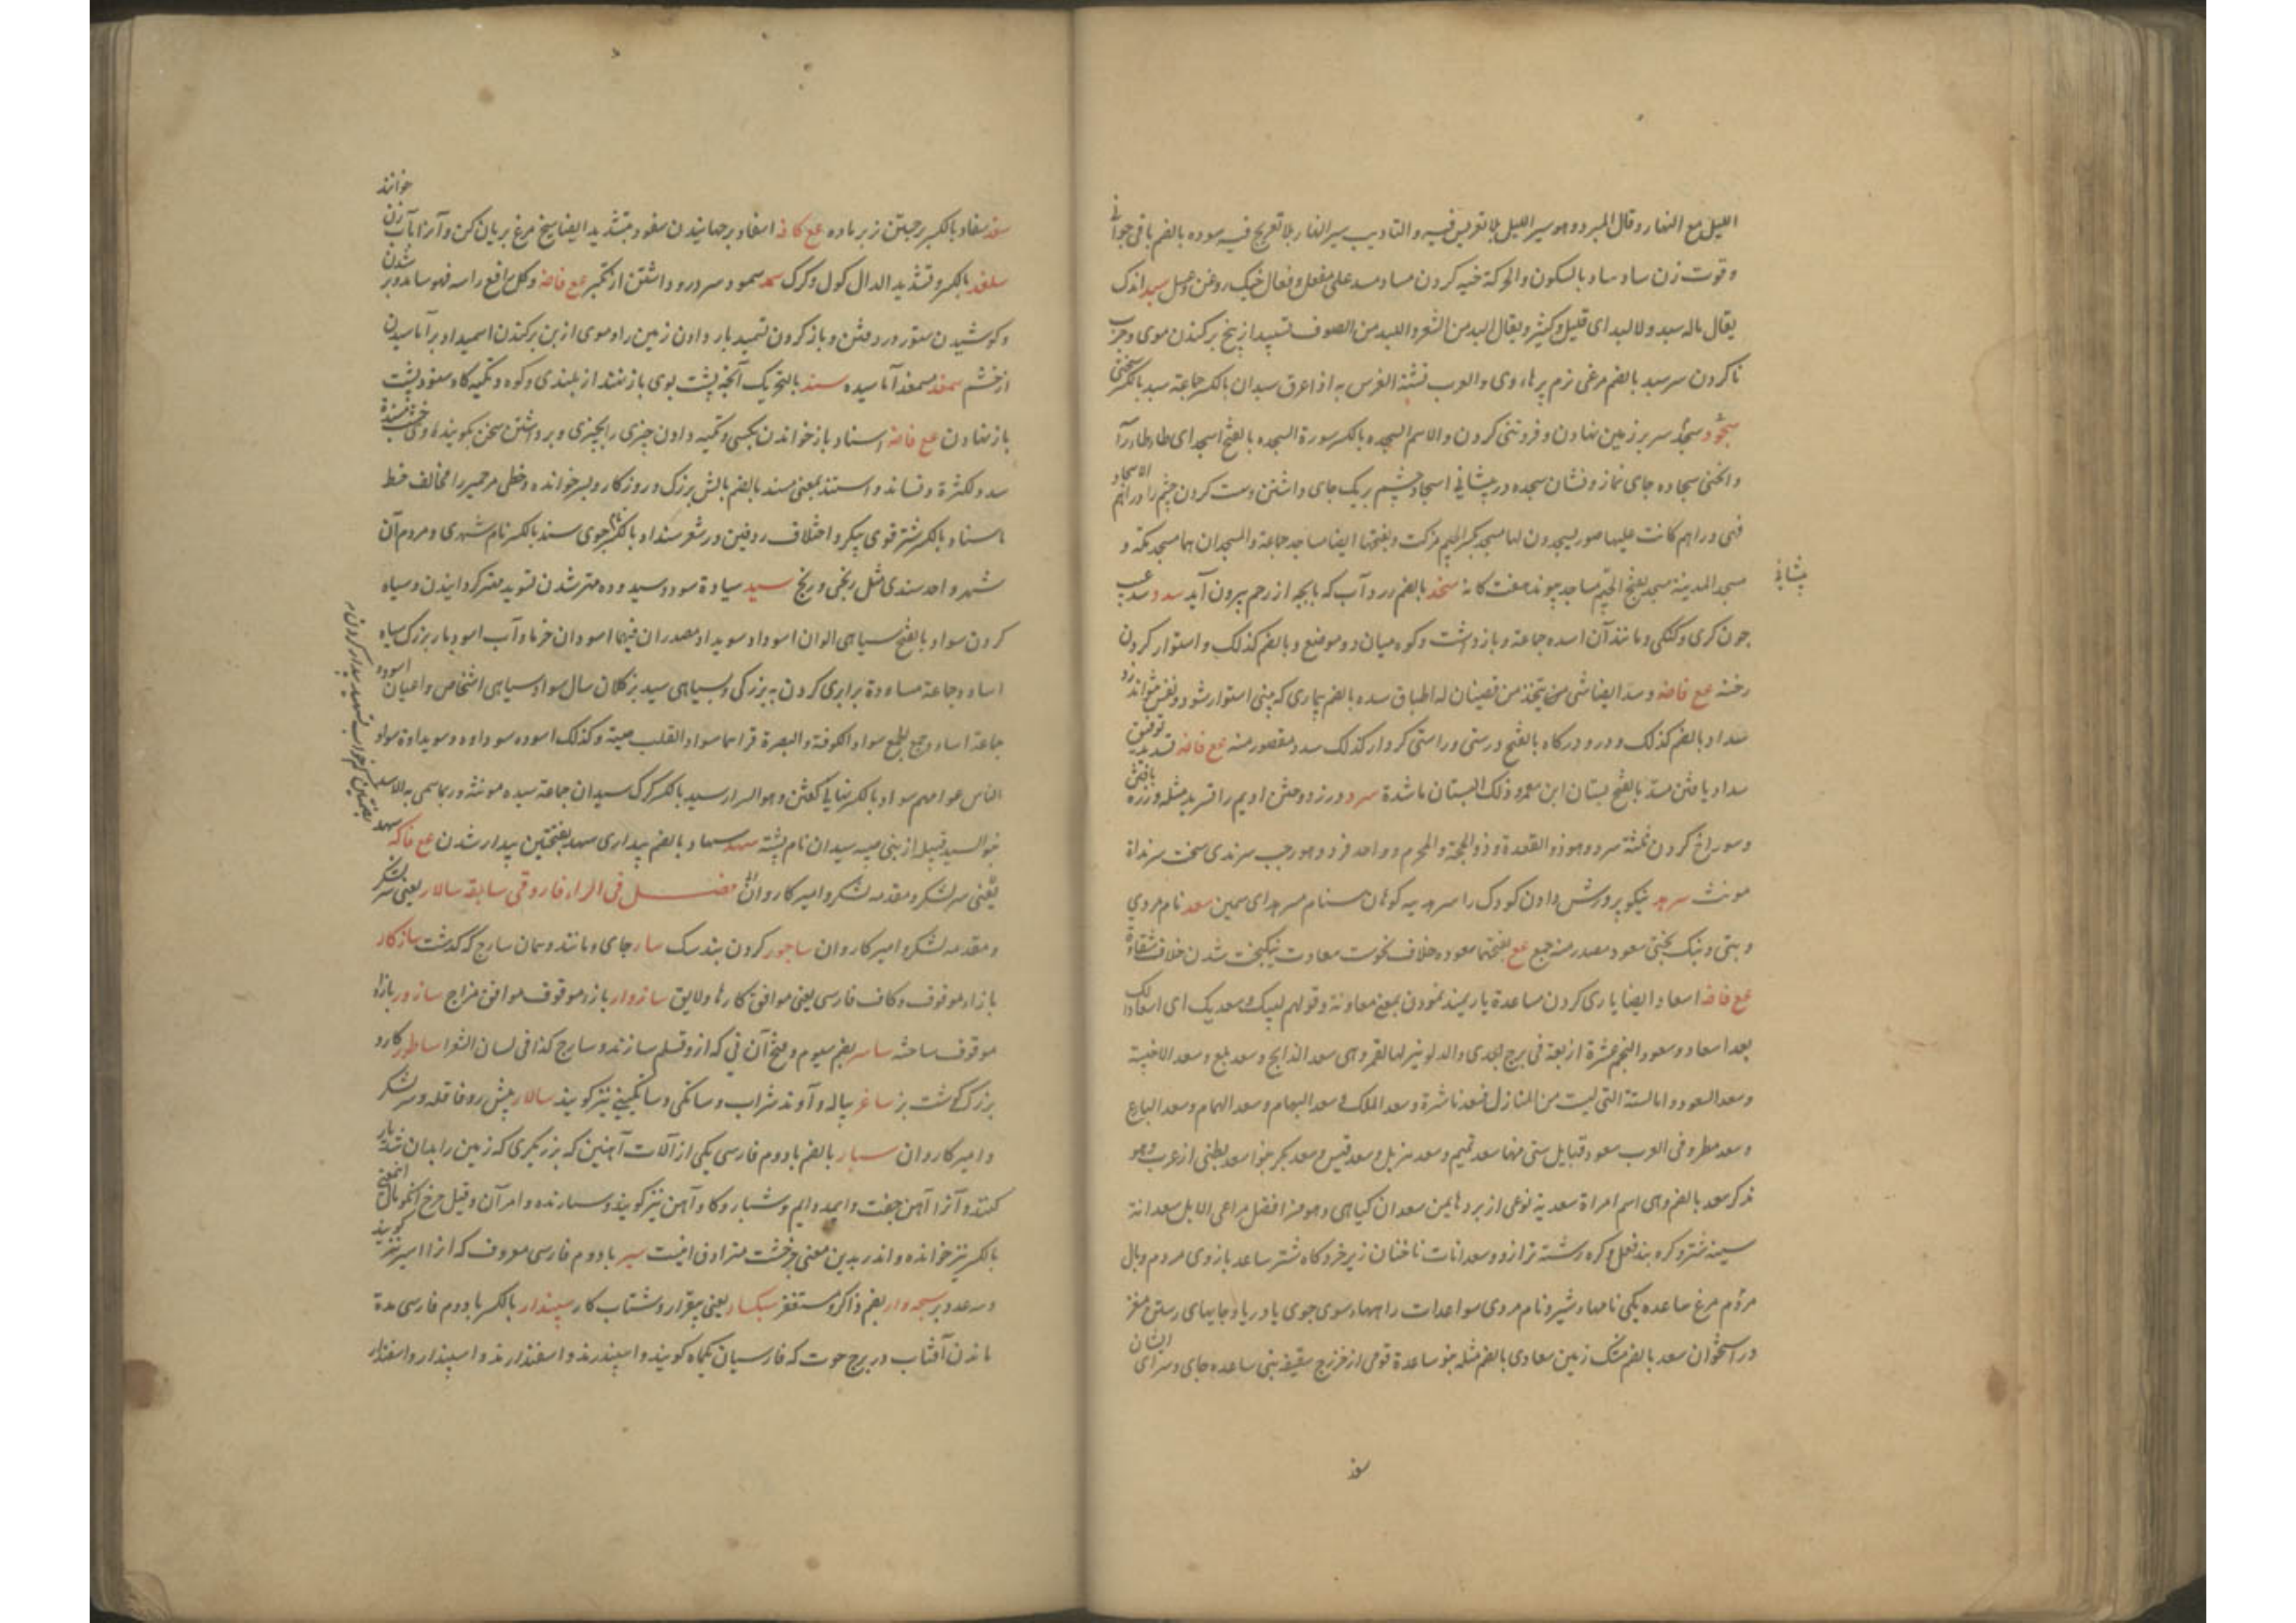 اللیل مع النهار و قال المبرد و هو سیر اللیل بلا تعریس فیه و التاویب سیر النهار بلا تعریج فیه سوده بالضم باقی جوانی
و قوت زن ساد ساد بالسکون و الحرکة خبه کردن مساد مسد علی مفعل و فعال خیک روغن و عسل سبد اندک
یقال ماله سبد و لا لبد ای قلیل و کثیر و یقال السبد من الشعر و اللبد من الصوف تسبید از بیخ برکندن موی و چرب
ناکردن سر سبد بالضم مرغی نرم پر هاء وی و العرب تشبه الفرس به اذا عرق سبدان بالکسر جماعة سبد بالکسر سختی
سجود سجد سر بر زمین نهادن و فروتنی کردن و الاسم السجده بالکسر سورة السجده بالفتح اسجد ای طاطا راسه
و انحنی سجاده جای نماز و نشان سجده در پیشانی اسجاد چشم بر یک جای داشتن و ست کردن چشم را دراهم الاسجاد
فهی دراهم کانت علیها صور یسجدون لها مسجد بکسر الجیم مزکت و بفتحها ایضا مساجد جماعة و المسجدان هما مسجد مکه و
پیشانی
مسجد المدینة مسجد بفتح الجیم مساجد پیوند هفت کانه سخد بالضم زرد آب که با بچه از رحم بیرون آید سدد سد عیب
چون کری و کنکی و مانند آن اسده جماعة و بازداشت و کوه میان دو موضع و بالضم کذلک و استوار کردن
رخنه مع فاضه و سد ایضا شی من یتخذ من قضبان له اطباق سده بالضم بیماری که بینی استوار شود و نفس نتواند زد
سداد بالضم کذلک و در و درکاه بالفتح درستی و راستی کردار کذلک سدد مقصور منه مع فاضه تسدید توفیق
سداد یافتن مسد بالفتح بستان ابن معمر و ذلک البستان ماشدة سرد ورزد و وختن ادیم را تسرید مثله و زره بافتن
و سوراخ کردن ثلثة سرد و هو ذو القعدة و ذو الحجة و المحرم و واحد فرد و هو رجب سرندی سخت سرنداة
مونث سرهد نیکو پرورش دادن کودک را سرهد پیه کوهان سنام مسرهد ای سمین سعد نام مردی
و بتی و نیک بختی سعود مصدر منه جمع مع بفتحهما سعوده خلاف نحوست سعادت نیکبخت شدن خلاف شقاوة
مع فاضه اسعاد ایضا یاری کردن مساعدة یاریمند نمودن بمعنی معاونة و قولهم لبیک و سعدیک ای اسعادا لک
بعد اسعاد و سعود النجم عشرة اربعة فی برج الجدی و الدلو ینزلها القمر و هی سعد الذابح و سعد بلع و سعد الاخبیة
و سعد السعود و اما الستة التی لیست من المنازل فسعد ناشرة و سعد الملک و سعد البهام و سعد الهمام و سعد البارع
و سعد مطر و فی العرب سعود قبایل ستی منها سعد تمیم و سعد هذیل و سعد قیس و سعد بکر بنو اسعد بطنی از عرب و هو
تذکر سعد بالضم و هی اسم امراة سعدیة نوعی از برد هاء یمن سعدان کیاهی و هو من افضل مراعی الابل سعدانة
سینه شتر و کره بند نعل و کره رشته ترازو و سعدانات ناخنان زیر خردکاه شتر ساعد بازوی مردم و بال
مردم مرغ ساعده یکی نامهاء شیر و نام مردی سواعدات راههاء سوی جوی یا دریا و جایهای رستن مغز
در استخوان سعد بالضم مشک زمین سعادی بالضم مثله بنو ساعدة قومی از خزرج سقیفه بنی ساعده جای و سرای ایشان
سفد
سفد سفاد بالکسر برجستن نر بر ماده مع کافه اسفاد برجهانیدن سفود بتشدید ایضا سیخ مرغ بریان کن و آنرا باب زن خوانند
سلغد بالکسر و تشدید الدال کول و کرک سمد سمود سر در دو داشتن از تکبر مع فاضه و کل رافع راسه فهو سامد و بر شدن
و کوشیدن ستور در رفتن و باز کردن تسمید بار دادن زمین را و موی از بن برکندن اسمیداد بر آماسیدن
از خشم سمغد مسمغد آماسیده سند بالتحریک آنچه پشت بوی باز نهند از بلندی و کوه و تکیه کاه و سنود پشت
باز نهادن مع فاضه اسناد باز خواندن بکسی و تکیه دادن چیزی را بچیزی و برداشتن سخن بگوینده و خشب مسندة
سدد لکثرة و تساند و استند بمعنی مسند بالضم بالش بزرک و روزکار و پسر خوانده و خطی مر حمیر را مخالف خط
ما سناد بالکسر شتر قوی پیکر و اختلاف ردفین در شعر سنداد بالکسر نام جوی سند بالکسر نام شهری و مردم آن
شهر واحد سندی مثل زنجی و زنج سید سیادة سودد سیدوده مهتر شدن تسوید مهتر کردانیدن و سیاه
کردن سواد بالفتح سیاهی الوان اسوداد سویداد مصدران فیهما اسودان خرما و آب اسود مار بزرک سیاه
اساود جماعة مساودة برابری کردن به بزرکی و بسیاهی سید بز کلان سال سواد سیاهی اشخاص و اعیان اسوده
جماعة اساود جمع الجمع سواد الکوفة و البصرة قراهما سواد القلب حبته و کذلک اسوده سوداوه و سویداوة سواد
الناس عوامهم سواد بالکسر نهانی گفتن و هو السرار سید بالکسر کرک سیدان جماعة سیده مونثه و ربما سمی به الاسد
بنو السید قبیله از بنی ضبه سیدان نام پشته سهد سهاد بالضم بیداری سهد بفتحتین بیدار شدن مع فاکه سهد
بضمتین کم خواب تسهید بیدار کردن
یعنی سر لشکر و مقدمه لشکر و امیر کاروان فصل فی الراء فاروقی سابقه سالار یعنی سر لشکر
و مقدمه لشکر و امیر کاروان ساجور کردن بند سک سار جای و مانند و همان سارج که گذشت سازکار
بازاء موقوف و کاف فارسی یعنی موافق کارها و لایق سازوار بازاء موقوف موافق مزاج سازور بازاء
موقوف ساخته سامر بضم سیوم و فتح آن نی که از و قلم سازند و سارج کذا فی لسان الشعرا ساطور کارد
بزرک گوشت بز ساغر پیاله و آوند شراب و ساتکی و ساتکینی نیز کویند سالار پیش رو قافله و سر لشکر
و امیر کاروان سپار بالضم با دوم فارسی یکی از آلات آهنین که برزیگری که زمین را بدان شد یار
کنند و آنرا آهن جفت و ایمد و ایم و شیار و کاو آهن نیز کویند و سپارنده و امر آن و قیل چرخ انکورمالی
بالکسر نیز خوانده و اندر بدین معنی چرخشت مترادف اینست سپر با دوم فارسی معروف که انرا اسپر نیز کویند
و سرعدوبر سبحه وار بضم ذاکر و مستغفر سبکسار یعنی بیقرار و شتاب کار سپندار بالکسر با دوم فارسی مدة
ماندن آفتاب در برج حوت که فارسیان یکماه کویند و اسپندرمذ و اسفندارمذ و اسپندار و اسفندار